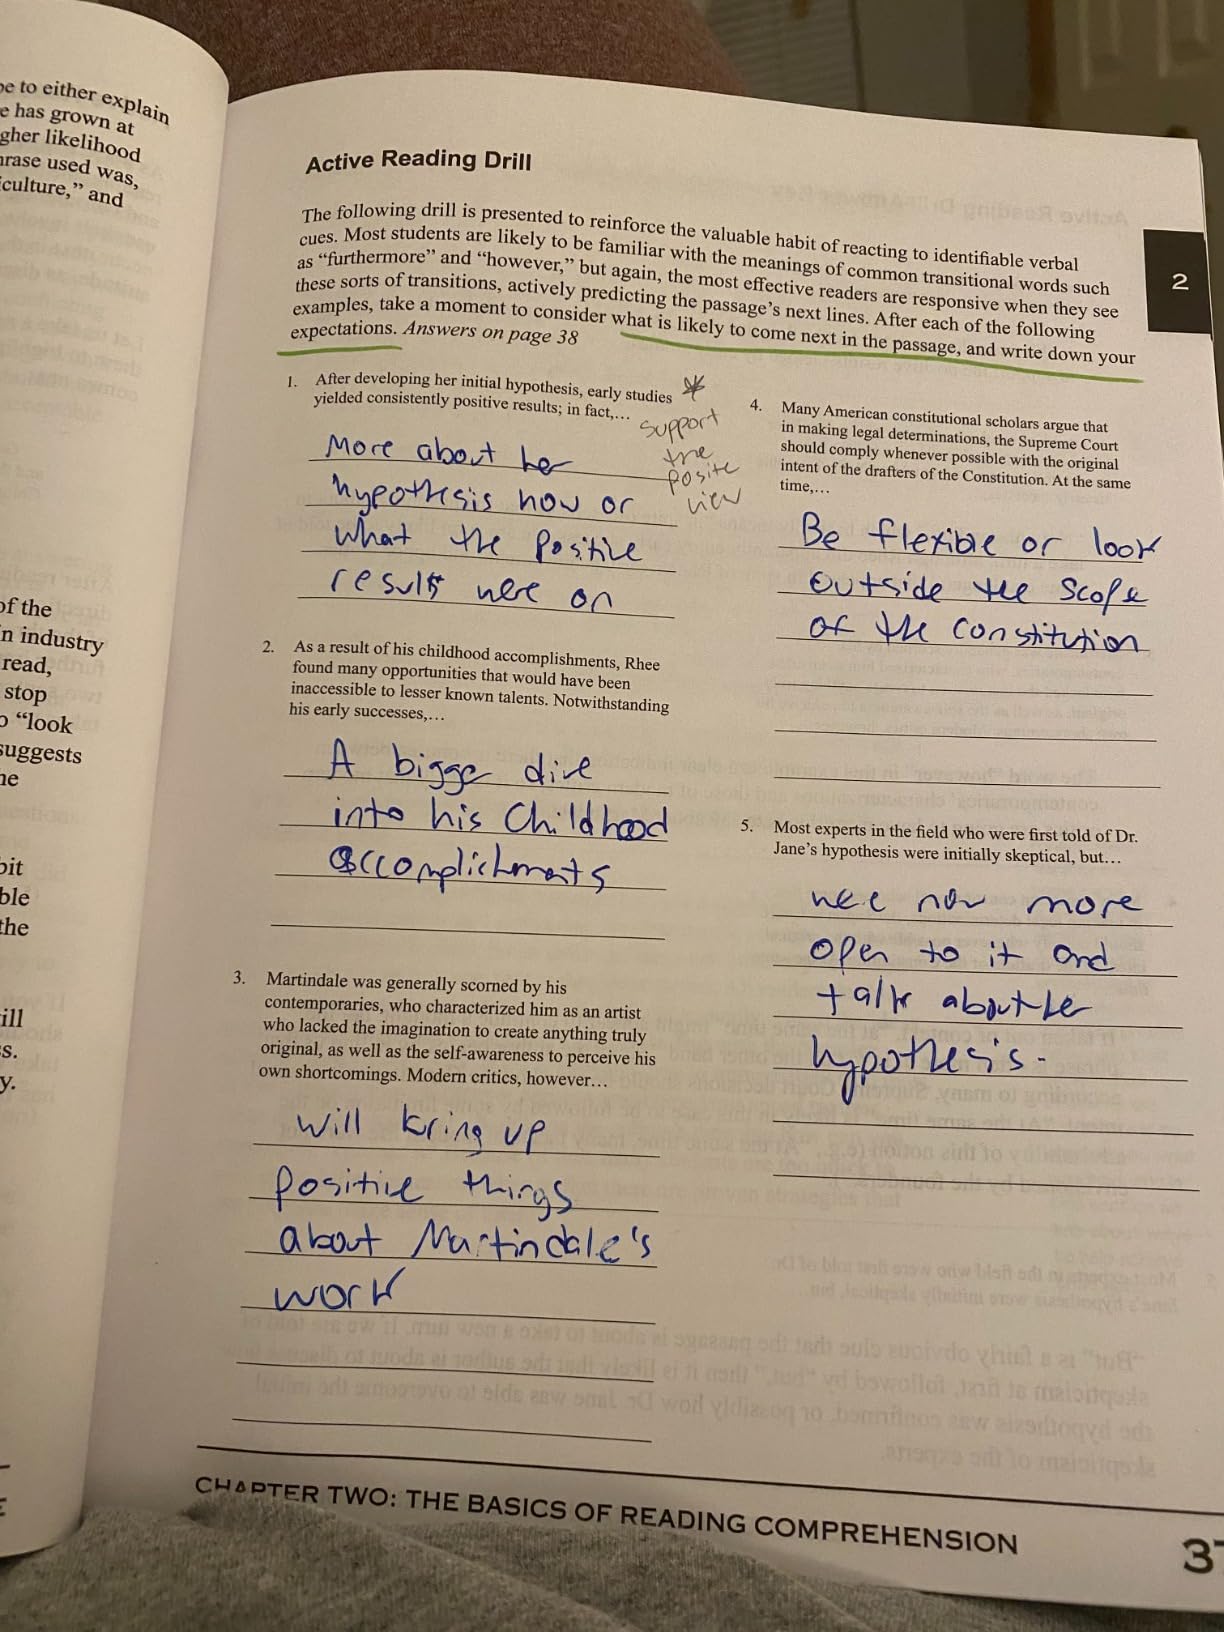 be to either explain
e has grown at
gher likelihood
hrase used was,
culture," and
of the
n industry
read,
stop
"look
suggests
ne
bit
ble
the
ill
s.
y.
Active Reading Drill
The following drill is presented to reinforce the valuable habit of reacting to identifiable verbal
cues. Most students are likely to be familiar with the meanings of common transitional words such
as "furthermore" and "however," but again, the most effective readers are responsive when they see
these sorts of transitions, actively predicting the passage's next lines. After each of the following
examples, take a moment to consider what is likely to come next in the passage, and write down your
expectations. Answers on page 38
2
1. After developing her initial hypothesis, early studies
yielded consistently positive results; in fact,...
support
the
posite
view
More about her
hypothesis now or
what the positive
results were on
2. As a result of his childhood accomplishments, Rhee
found many opportunities that would have been
inaccessible to lesser known talents. Notwithstanding
his early successes,...
A bigge dive
into his Childhood
accomplichments
3. Martindale was generally scorned by his
contemporaries, who characterized him as an artist
who lacked the imagination to create anything truly
original, as well as the self-awareness to perceive his
own shortcomings. Modern critics, however...
will bring up
positive things
about Martindale's
work
4. Many American constitutional scholars argue that
in making legal determinations, the Supreme Court
should comply whenever possible with the original
intent of the drafters of the Constitution. At the same
time,...
Be flexible or look
outside the scope
of the constitution
5. Most experts in the field who were first told of Dr.
Jane's hypothesis were initially skeptical, but...
were now more
open to it and
talk about he
hypothesis.
CHAPTER TWO: THE BASICS OF READING COMPREHENSION
37